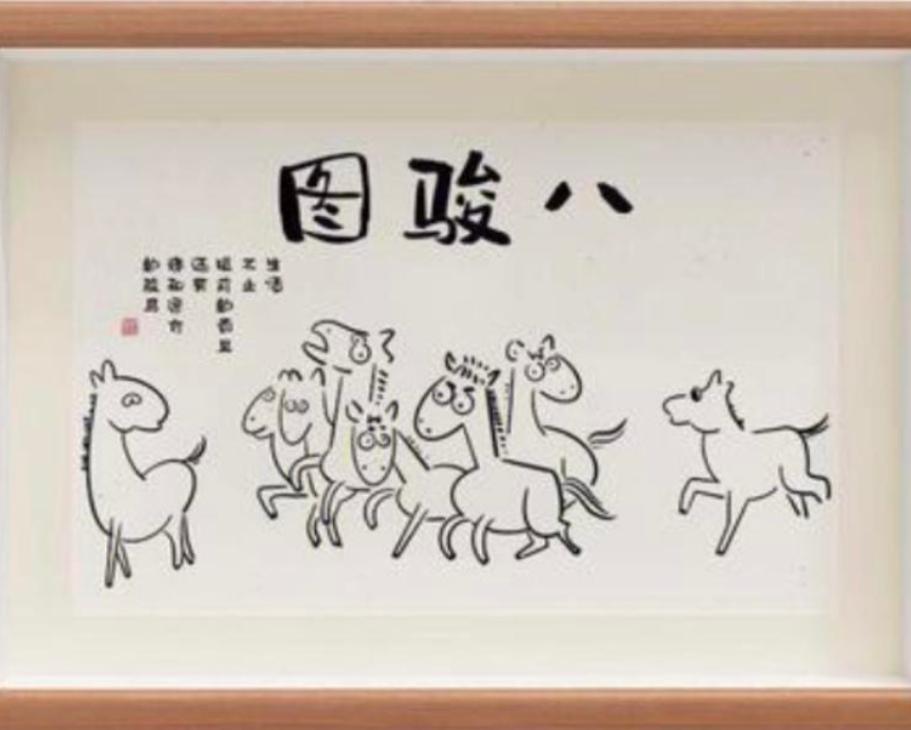 八骏图
生活
不止
眼前的苟且
还有
诗和远方
的骏马